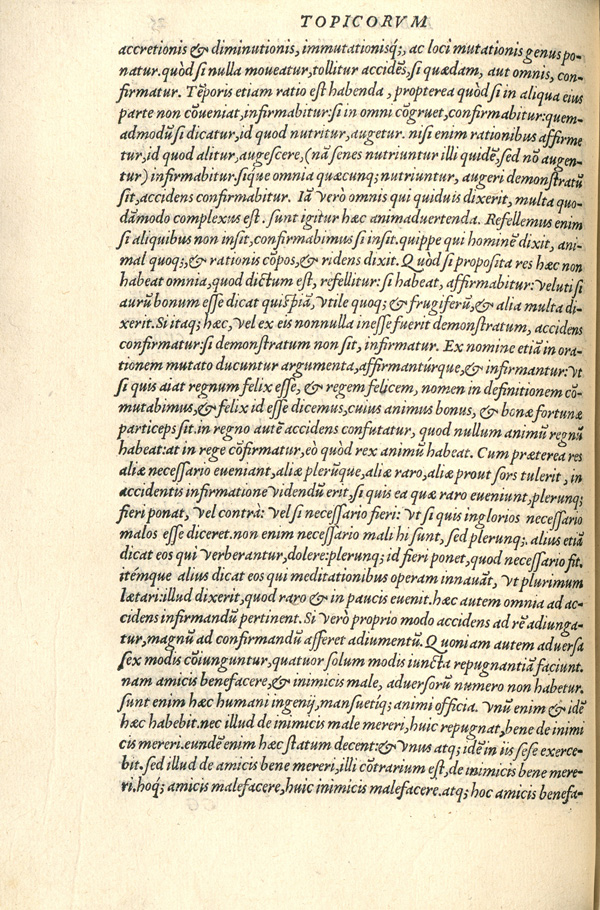 TOPICORVM
accretionis & diminutionis, immutationisq́;, ac loci mutationis genus po-
natur. quòd si nulla moveatur, tollitur accidēs, si quædam, aut omnis, con-
firmatur. Tēporis etiam ratio est habenda, propterea quòd si in aliqua eius
parte non cōueniat, infirmabitur: si in omni cōgruet, confirmabitur: quem-
admodū si dicatur, id quod nutritur, augetur. nisi enim rationibus affirme
tur, id quod alitur, augescere, (nā senes nutriuntur illi quidē, sed nō augen-
tur) infirmabitur. sique omnia quæcunq; nutriuntur, augeri demonstratū
sit, accidens confirmabitur. Iā verò omnis qui quiduis dixerit, multa quo-
dāmodo complexus est. sunt igitur hæc animaduertenda. Refellemus enim
si aliquibus non insit, confirmabimus si insit. quippe qui hominē dixit, ani-
mal quoq;, & rationis cōpos, & ridens dixit. Quòd si proposita res hæc non
habeat omnia, quod dictum est, refellitur: si habeat, affirmabitur: veluti si
aurū bonum esse dicat quispiā, vtile quoq; & frugiferū, & alia multa di-
xerit. Si itaq; hæc, vel ex eis nonnulla inesse fuerit demonstratum, accidens
confirmatur: si demonstratum non sit, infirmatur. Ex nomine etiā in ora-
tionem mutato ducuntur argumenta, affirmantúrque, & infirmantur: vt
si quis aiat regnum felix esse, & regem felicem, nomen in definitionem cō-
mutabimus, & felix id esse dicemus, cuius animus bonus, & bonæ fortunæ
particeps sit. in regno autē accidens confutatur, quod nullum animū regnū
habeat: at in rege cōfirmatur, eò quòd rex animū habeat. Cum præterea res
aliæ necessario eueniant, aliæ plerūque, aliæ raro, aliæ prout fors tulerit, in
accidentis infirmatione videndū erit, si quis ea quæ raro eueniunt, plerunq;
fieri ponat, vel contrà: vel si necessario fieri: vt si quis inglorios necessario
malos esse diceret. non enim necessario mali hi sunt, sed plerunq;. alius etiā
dicat eos qui verberantur, dolere: plerunq; id fieri ponet, quod necessario fit.
itémque alius dicat eos qui meditationibus operam innauāt, vt plurimum
lætari: illud dixerit, quod raro & in paucis euenit. hæc autem omnia ad ac-
cidens infirmandū pertinent. Si verò proprio modo accidens ad rē adiunga-
tur, magnū ad confirmandū afferet adiumentū. Quoniam autem aduersa
sex modis cōiunguntur, quatuor solum modis iuncta repugnantiā faciunt.
nam amicis benefacere, & inimicis male, adversorū numero non habetur.
sunt enim hæc humani ingenij, mansuetiq; animi officia. Vnū enim & idē
hæc habebit. nec illud de inimicis male mereri, huic repugnat, bene de inimi
cis mereri. eundē enim hæc statum decent: & vnus atq; idē in iis sese exerce-
bit. sed illud de amicis bene mereri, illi cōtrarium est, de inimicis bene mere-
ri. hoq́; amicis malefacere, huic inimicis malefacere. atq; hoc amicis benefa-